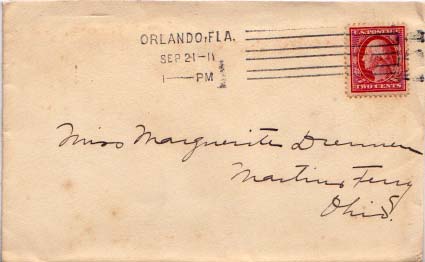 ORLANDO, FLA.
SEP 21-11
1—PM
U.S. POSTAGE
TWO CENTS
Miss Marguerite Drennen
Martins Ferry
Ohio.